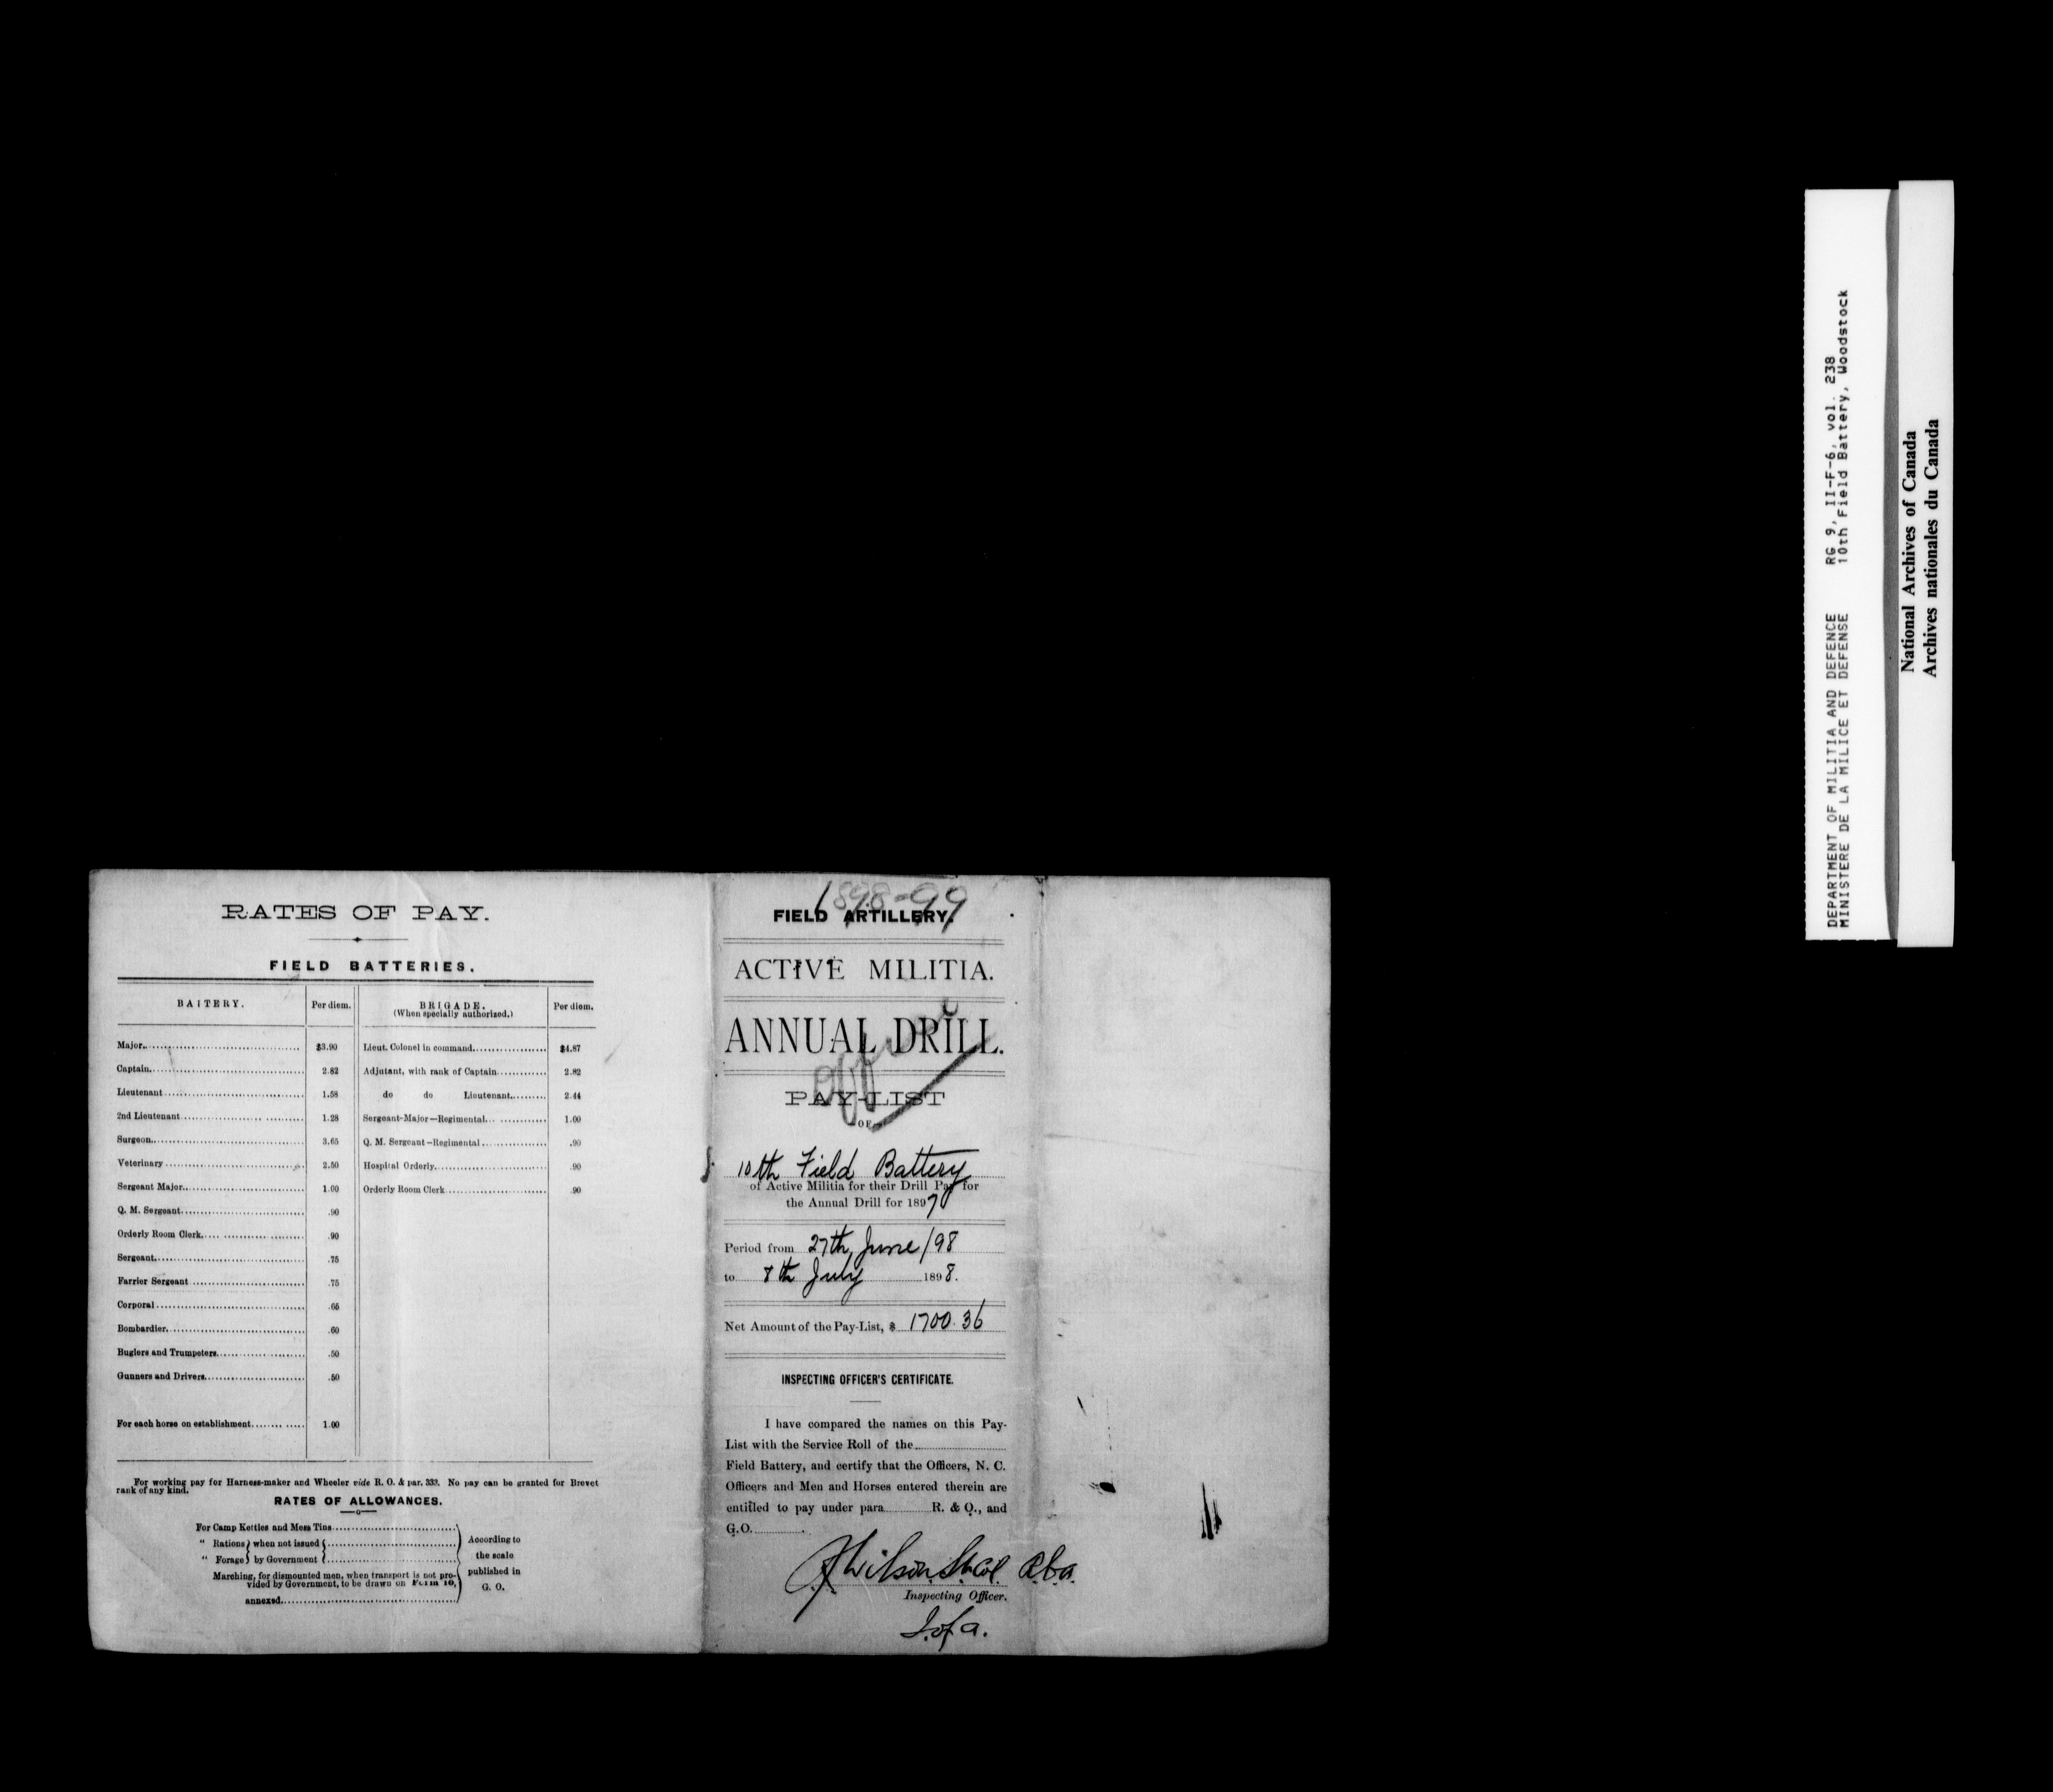 RATES OF PAY.
FIELD BATTERIES.
BATTERY. Per diem. BRIGADE. (When specially authorized.) Per diem.
Major. $3.90 Lieut. Colonel in command. $4.87
Captain. 2.82 Adjutant, with rank of Captain. 2.82
Lieutenant 1.58 do do Lieutenant. 2.44
2nd Lieutenant 1.28 Sergeant-Major—Regimental. 1.00
Surgeon. 3.65 Q. M. Sergeant—Regimental .90
Veterinary 2.50 Hospital Orderly. .90
Sergeant Major. 1.00 Orderly Room Clerk .90
Q. M. Sergeant. .90
Orderly Room Clerk. .90
Sergeant. .75
Farrier Sergeant .75
Corporal .65
Bombardier. .60
Buglers and Trumpeters. .50
Gunners and Drivers. .50
For each horse on establishment. 1.00
For working pay for Harness-maker and Wheeler vide R. O. & par. 333. No pay can be granted for Brevet
rank of any kind.
RATES OF ALLOWANCES.
For Camp Kettles and Mess Tins
" Rations } when not issued {
" Forage } by Government {
Marching, for dismounted men, when transport is not pro-
vided by Government, to be drawn on Form 10,
annexed.
According to
the scale
published in
G. O.
1898-99
FIELD ARTILLERY.
ACTIVE MILITIA.
ANNUAL DRILL.
PAY-LIST
OF
10th Field Battery
of Active Militia for their Drill Pay for
the Annual Drill for 1897
Period from 27th June/98
to 8th July 1898.
Net Amount of the Pay-List, $ 1700.36
INSPECTING OFFICER'S CERTIFICATE.
I have compared the names on this Pay-
List with the Service Roll of the
Field Battery, and certify that the Officers, N. C.
Officers and Men and Horses entered therein are
entitled to pay under para. R. & O., and
G.O.
Wilson
Inspecting Officer.
I. of A.
DEPARTMENT OF MILITIA AND DEFENCE RG 9, II-F-6, vol. 238
MINISTERE DE LA MILICE ET DEFENSE 10th Field Battery, Woodstock
National Archives of Canada
Archives nationales du Canada